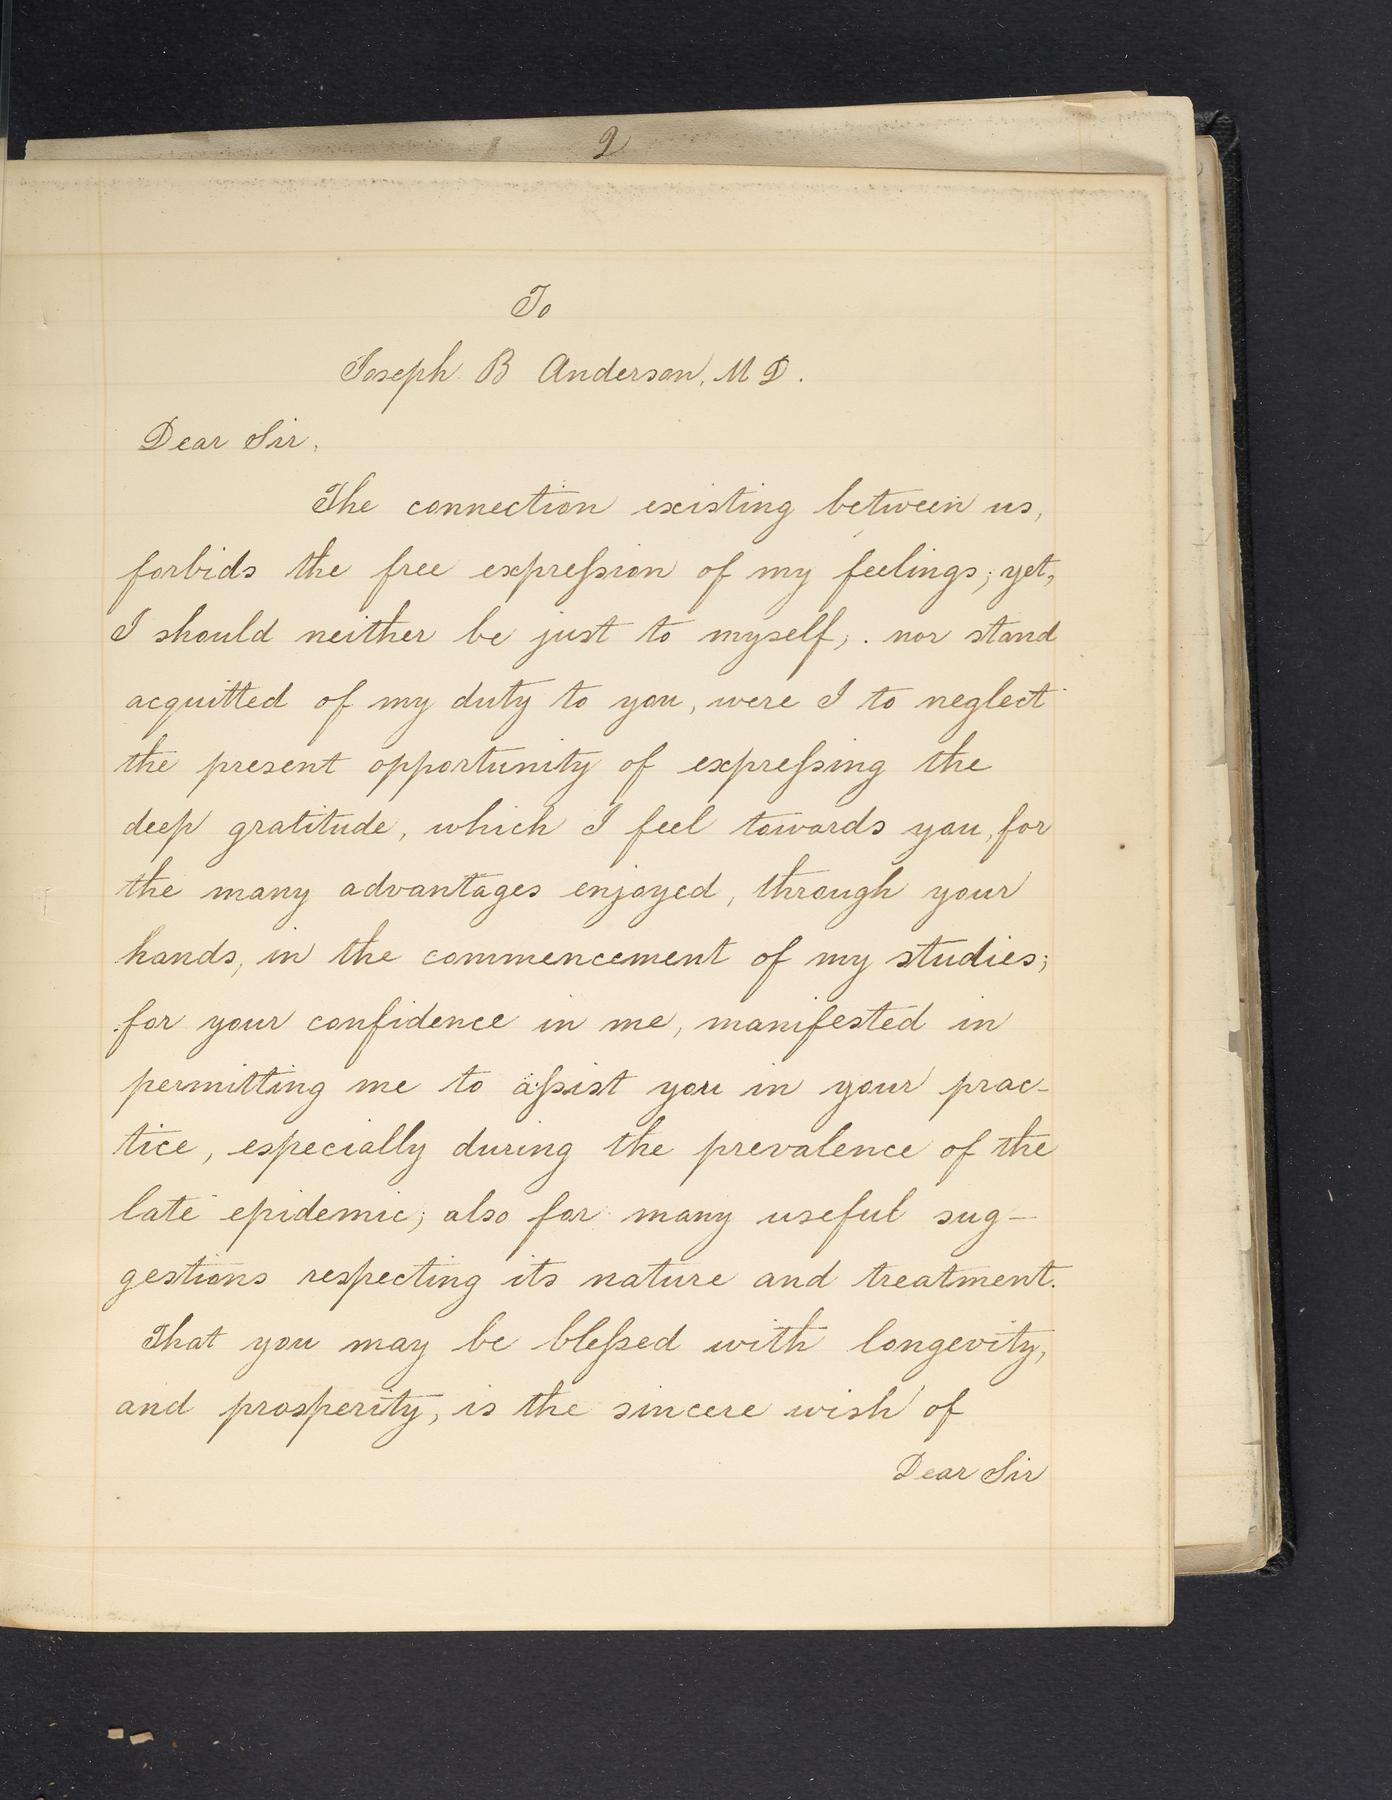 2
To
Joseph B Anderson, M D.
Dear Sir,
The connection existing between us,
forbids the free expreſsion of my feelings; yet,
I should neither be just to myself, nor stand
acquitted of my duty to you, were I to neglect
the present opportunity of expreſsing the
deep gratitude, which I feel towards you, for
the many advantages enjoyed, through your
hands, in the commencement of my studies;
for your confidence in me, manifested in
permitting me to aſsist you in your prac-
tice, especially during the prevalence of the
late epidemic; also for many useful sug-
gestions respecting its nature and treatment.
That you may be bleſsed with longevity,
and prosperity, is the sincere wish of
Dear Sir